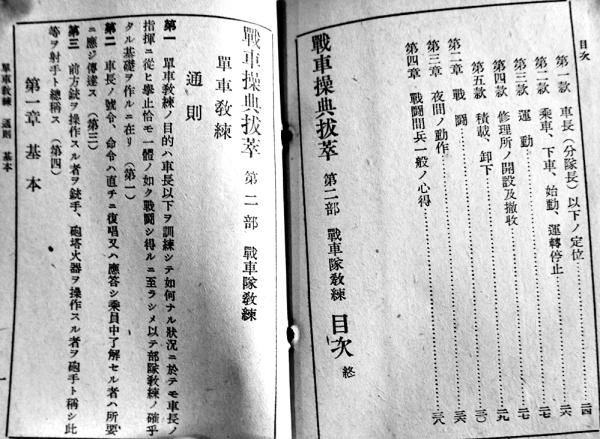 目次
第一款 車長(分隊長)以下ノ定位……二四
第二款 乘車、下車、始動、運轉停止……二六
第三款 運動……二七
第四款 修理所ノ開設及撤收……二九
第五款 積載、卸下……三〇
第二章 戰鬪……三六
第三章 夜間ノ動作……三八
第四章 戰鬪間兵一般ノ心得
戰車操典拔萃 第二部 戰車隊敎練 目次 終
戰車操典拔萃 第二部 戰車隊敎練
單車敎練
通則
第一 單車敎練ノ目的ハ車長以下ヲ訓練シテ如何ナル狀況ニ於テモ車長ノ
指揮ニ從ヒ擧止恰モ一體ノ如ク戰鬪シ得ルニ至ラシメ以テ部隊敎練ノ確乎
タル基礎ヲ作ルニ在リ(第一)
第二 車長ノ號令、命令ハ直チニ復唱又ハ應答シ乘員中了解セル者ハ所要
ニ應ジ傳達ス(第三)
第三 前方銃ヲ操作スル者ヲ銃手、砲塔火器ヲ操作スル者ヲ砲手ト稱シ此
等ヲ射手ト總稱ス(第四)
第一章 基本
單車敎練 通則 基本
一